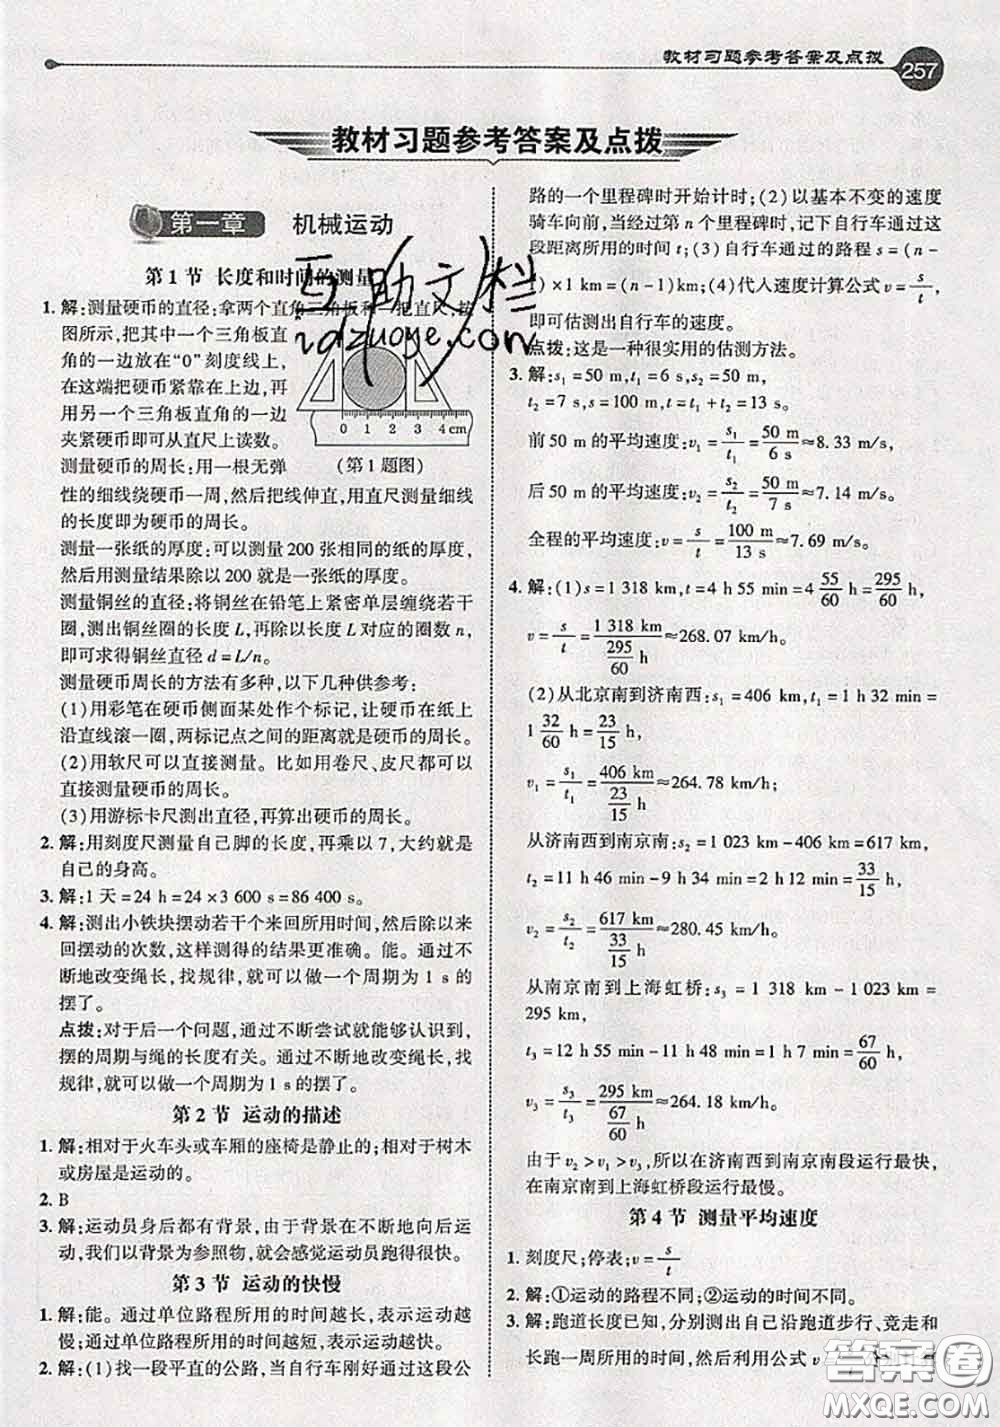 教材习题参考答案及点拨
257
教材习题参考答案及点拨
第一章 机械运动
第1节 长度和时间的测量
1. 解:测量硬币的直径:拿两个直角三角板和一把直尺,按
图所示,把其中一个三角板直
角的一边放在“0”刻度线上,
在这端把硬币紧靠在上边,再
用另一个三角板直角的一边
夹紧硬币即可从直尺上读数。
测量硬币的周长:用一根无弹
0 1 2 3 4 cm
(第1题图)
性的细线绕硬币一周,然后把线伸直,用直尺测量细线
的长度即为硬币的周长。
测量一张纸的厚度:可以测量 200 张相同的纸的厚度,
然后将测量结果除以 200 就是一张纸的厚度。
测量铜丝的直径:将铜丝在铅笔上紧密单层缠绕若干
圈,测出铜丝圈的长度 L,再除以长度 L 对应的圈数 n,
即可求得铜丝直径 d=L/n。
测量硬币周长的方法有多种,以下几种供参考:
(1)用彩笔在硬币侧面某处作个标记,让硬币在纸上
沿直线滚一圈,两标记点之间的距离就是硬币的周长。
(2)用软尺可以直接测量。比如用卷尺、皮尺都可以
直接测量硬币的周长。
(3)用游标卡尺测出直径,再算出硬币的周长。
2. 解:用刻度尺测量自己脚的长度,再乘以 7,大约就是
自己的身高。
3. 解:1 天=24 h=24×3 600 s=86 400 s。
4. 解:测出小铁块摆动若干个来回所用时间,然后除以来
回摆动的次数,这样测得的结果更精确。能。通过不
断地改变绳长,找规律,就可以做一个周期为 1 s 的
摆了。
点拨:对于后一个问题,通过不断尝试就能够认识到,
摆的周期与绳的长度有关。通过不断地改变绳长,找
规律,就可以做一个周期为 1 s 的摆了。
第2节 运动的描述
1. 解:相对于火车头或车厢的座椅是静止的;相对于树木
或房屋是运动的。
2. B
3. 解:运动员身后都有背景,由于背景在不断地向后运
动,我们以背景为参照物,就会感觉运动员跑得很快。
第3节 运动的快慢
1. 解:能。通过单位路程所用的时间越长,表示运动越
慢;通过单位路程所用的时间越短,表示运动越快。
2. 解:(1)找一段平直的公路,当自行车刚好通过这段公
路的一个里程碑时开始计时;(2)以基本不变的速度
骑车向前,当经过第 n 个里程碑时,记下自行车通过这
段距离所用的时间 t;(3)自行车通过的路程 s=(n-
1)×1 km=(n-1)km;(4)代入速度计算公式 v=s/t,
即可估测出自行车的速度。
点拨:这是一种很实用的估测方法。
3. 解:s₁=50 m,t₁=6 s,s₂=50 m,
t₂=7 s,s=100 m,t=t₁+t₂=13 s。
前 50 m 的平均速度:v₁=s₁/t₁=50 m/6 s≈8.33 m/s,
后 50 m 的平均速度:v₂=s₂/t₂=50 m/7 s≈7.14 m/s,
全程的平均速度:v=s/t=100 m/13 s≈7.69 m/s。
4. 解:(1)s=1 318 km,t=4 h 55 min=4 55/60 h=295/60 h,
v=s/t=1 318 km/(295/60 h)≈268.07 km/h。
(2)从北京南到济南西:s₁=406 km,t₁=1 h 32 min=
1 32/60 h=23/15 h,
v₁=s₁/t₁=406 km/(23/15 h)≈264.78 km/h。
从济南西到南京南:s₂=1 023 km-406 km=617 km,
t₂=11 h 46 min-9 h 34 min=2 h 12 min=33/15 h,
v₂=s₂/t₂=617 km/(33/15 h)≈280.45 km/h。
从南京南到上海虹桥:s₃=1 318 km-1 023 km=
295 km,
t₃=12 h 55 min-11 h 48 min=1 h 7 min=67/60 h,
v₃=s₃/t₃=295 km/(67/60 h)≈264.18 km/h。
由于 v₂>v₁>v₃,所以在济南西到南京南段运行最快,
在南京南到上海虹桥段运行最慢。
第4节 测量平均速度
1. 刻度尺;停表;v=s/t
2. 解:①运动的路程不同;②运动的时间不同。
3. 解:跑道长度已知,分别测出自己沿跑道步行、竞走和
长跑一周所用的时间,然后利用公式 v
互助文档
idzuoye.com
答案圈
MXQE.COM